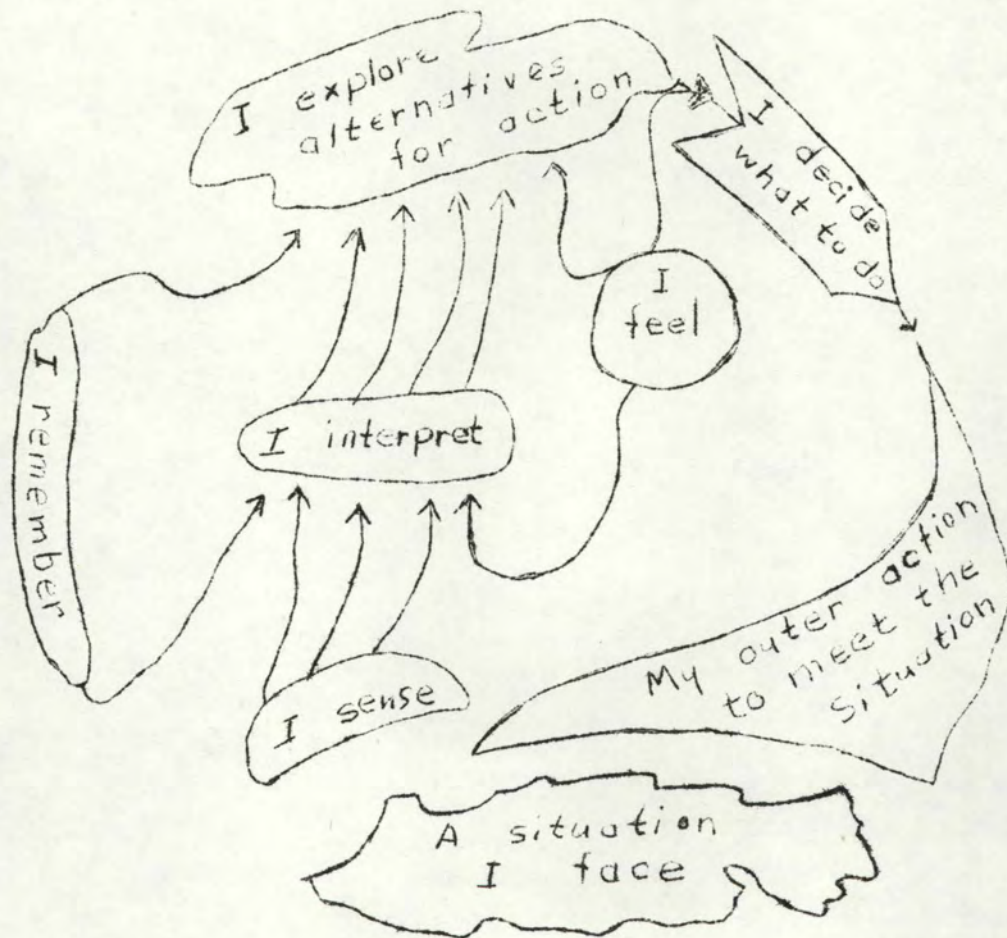 I explore
alternatives
for action
I decide
what to do
I
feel
I remember
I interpret
I sense
My outer action
to meet the
situation
A situation
I face